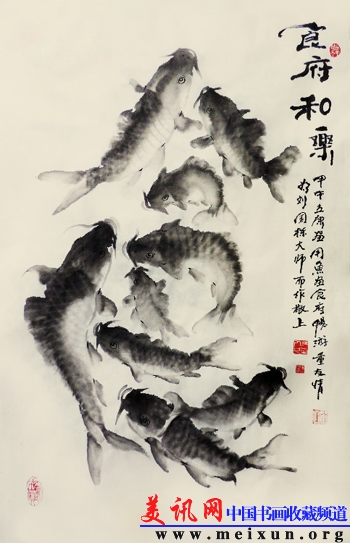 食府和乐
甲午五原画用鱼画食府畅游重在情
为刘国栋大师而作敬上
美讯网 中国书画收藏频道
www.meixun.org